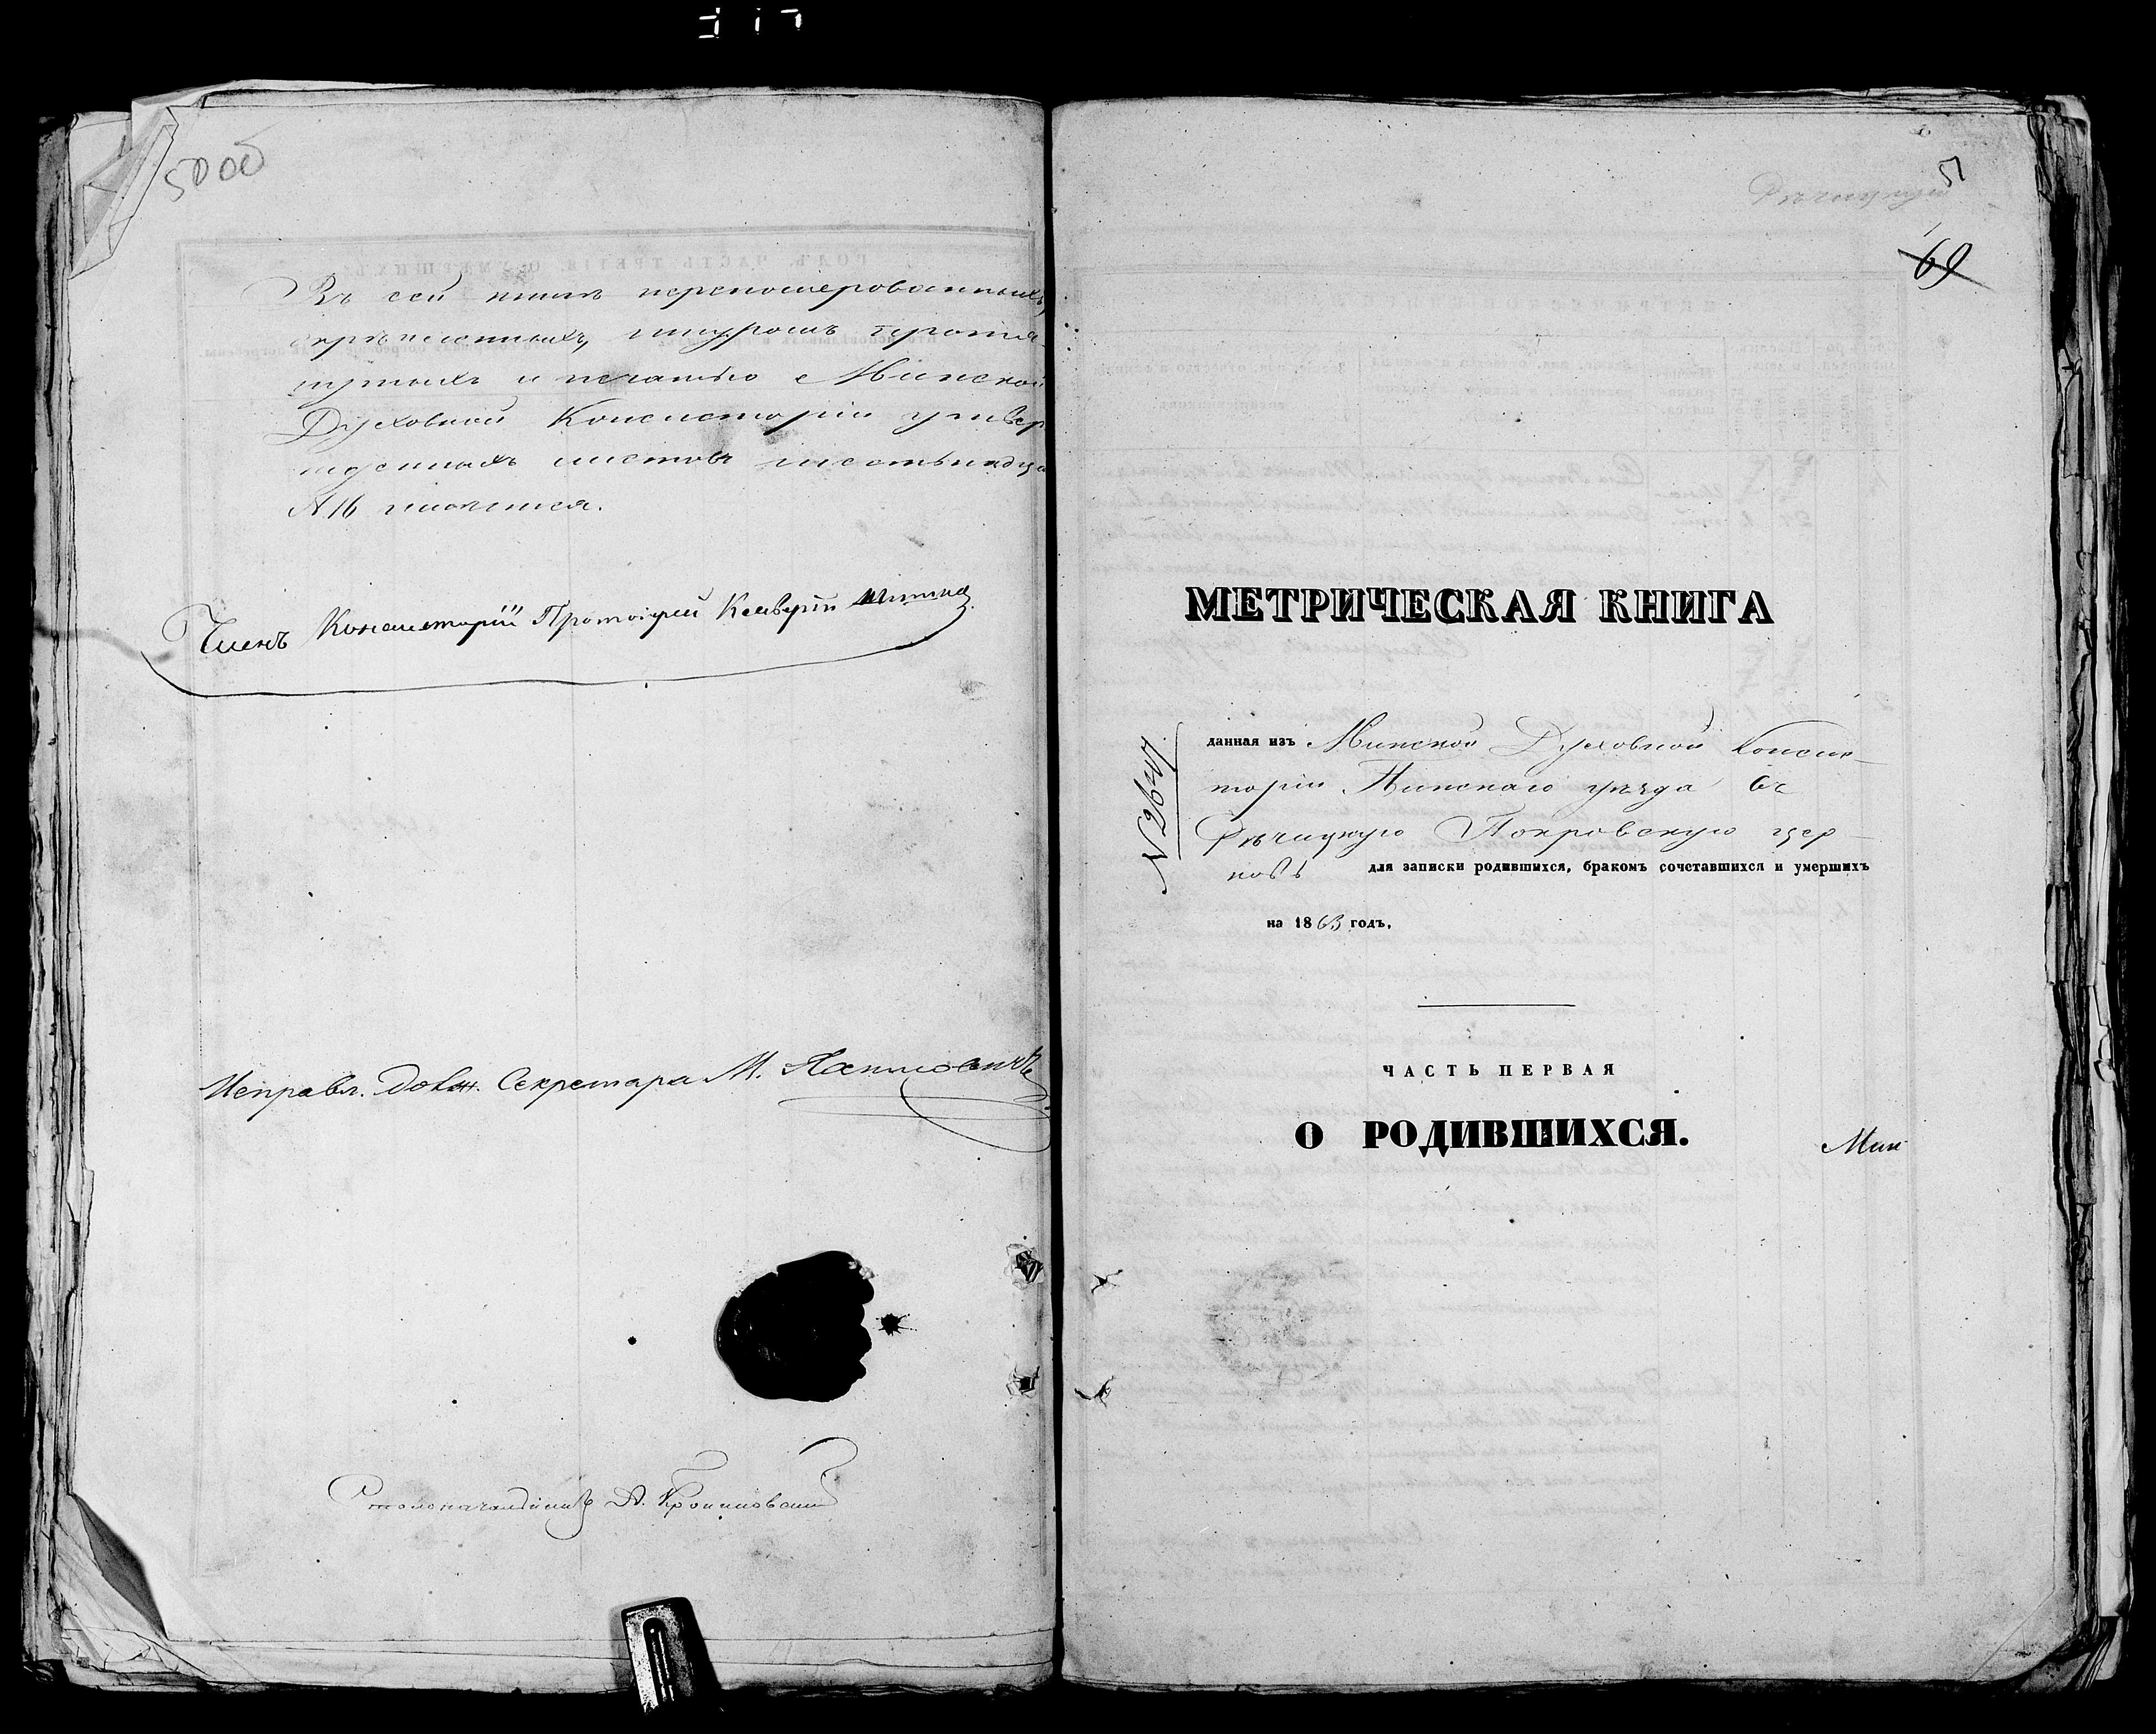 50 об
Въ сей книгѣ перенумерованныхъ,
скрѣпленныхъ, шнуромъ протя-
нутыхъ и печатью Минской
Духовной Консисторіи утвер
жденныхъ листовъ шестьнадца
№ 16 имѣется.
Членъ Консисторіи Протоіерей
Исправл. Должн. Секретаря М.
Столоначальникъ А.
51
Рѣчицкой
69
МЕТРИЧЕСКАЯ КНИГА
№ 2647.
данная изъ Минской Духовной Консис-
торіи Пинскаго уѣзда въ
Рѣчицкую Покровскую цер-
ковь для записки родившихся, бракомъ сочетавшихся и умершихъ
на 1863 годъ.
ЧАСТЬ ПЕРВАЯ
О РОДИВШИХСЯ.
Мин